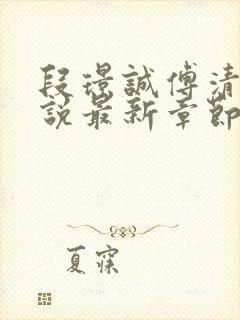 段璟誠傅清
說最新章節
夏寐